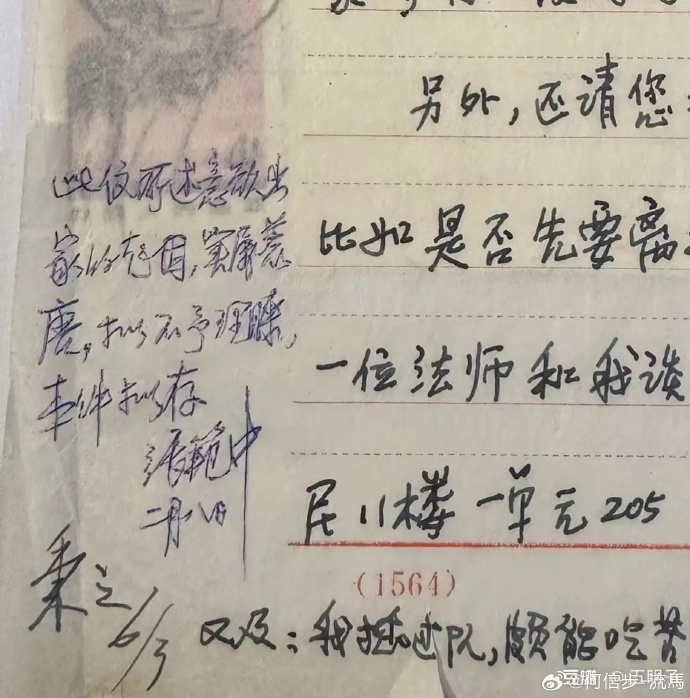 另外,还请您
此仪所述意欲出
家的起因,实属荒
唐,拟不予理睬,
本件拟存
张范中
二月八日
比如是否先要离
一位法师和我谈
民11楼一单元205
(1564)
6/3
又及:我插过队,颇能吃苦
豆瓣
@何倍步-流馬